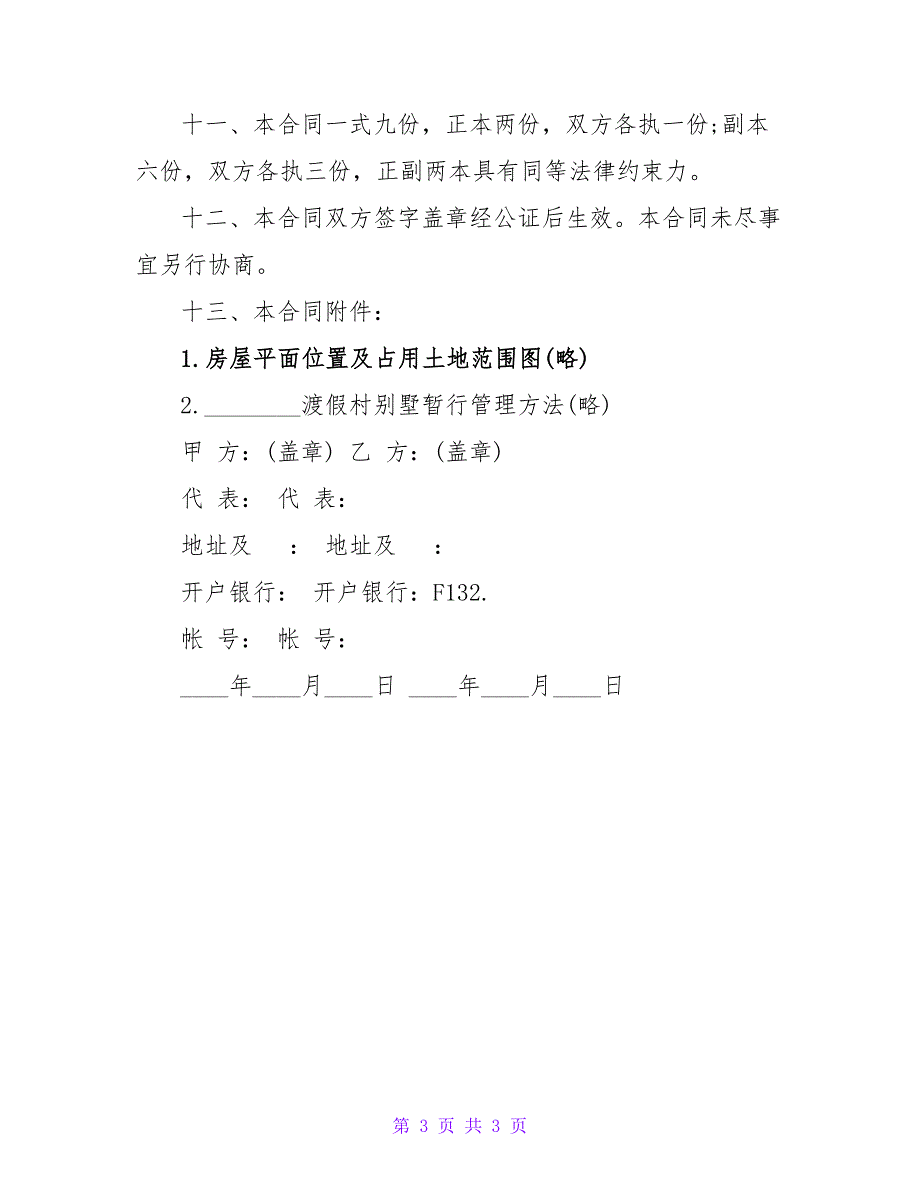 十一、本合同一式九份，正本两份，双方各执一份;副本
六份，双方各执三份，正副两本具有同等法律约束力。
十二、本合同双方签字盖章经公证后生效。本合同未尽事
宜另行协商。
十三、本合同附件：
1.房屋平面位置及占用土地范围图(略)
2.________渡假村别墅暂行管理方法(略)
甲 方：(盖章) 乙 方：(盖章)
代 表： 代 表：
地址及  ： 地址及  ：
开户银行： 开户银行：F132.
帐 号： 帐 号：
____年____月____日 ____年____月____日
第 3 页 共 3 页